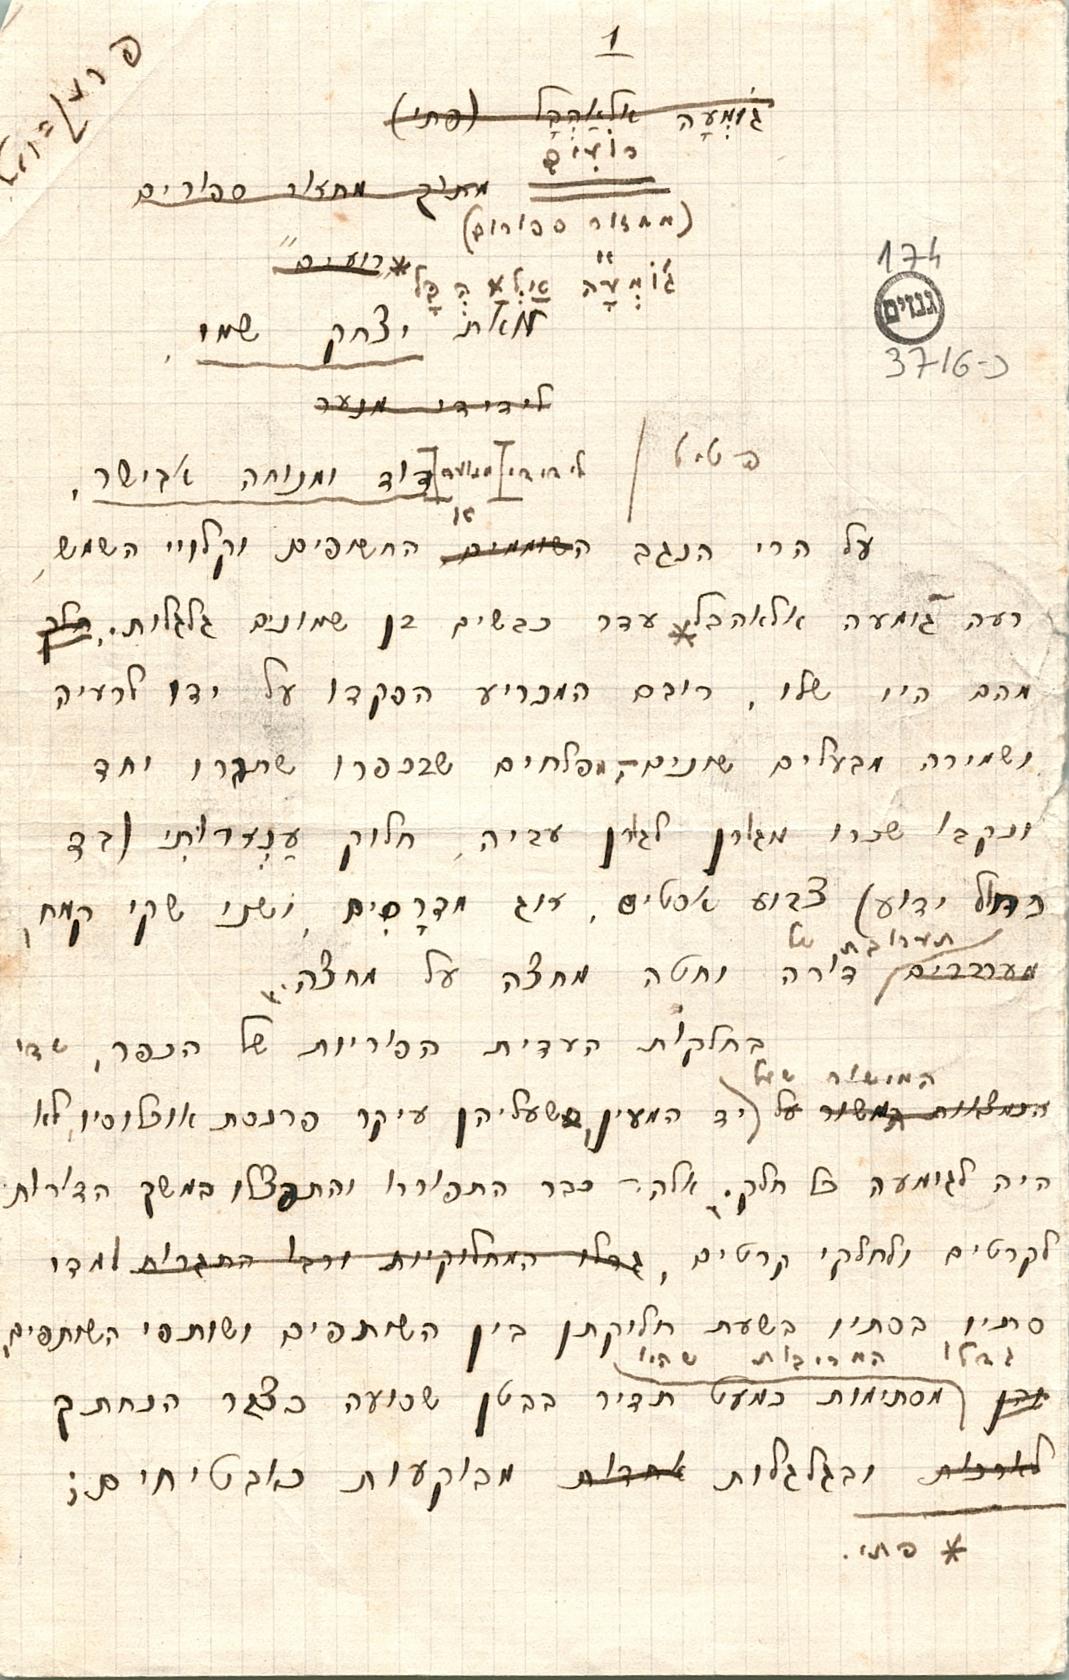 1
ג'וּמְעָה אִלְאַהְבָּל (פתי)
רוֹעִים
מתוך מחזור ספורים
(מחזור ספורים)
*רועים"
ג'וּמְעָה אִלְאַהְבָּל
מאת יצחק שמי
174
גנזים
כ-3716
לידידי מנוער
פטיט
לידידי [מנוער] דוד ומנוחה אבישר,
על הרי הנגב השוממים החשופים וקלויי השמש,
רעה ג'ומעה אלאהבל* עדר כבשים בן שמונים גלגלות. חלק
מהם היו שלו, רובם המכריע הפקדו על ידו לרעיה
ושמירה מבעלים שונים מפלחים שבכפרו שחברו יחד
ונקבו שכרו מגורן לגורן עביה, חלוק עַנְדרוּתִי (בד
כחול ידוע) צבוע אסטיס, זוג מדרָסִים, ושני שקי קמח,
תערובת של
מעורבבים דורה וחטה מחצה על מחצה.
בחלקות העדית הפוריות של הכפר, שדי
המישור של
הנמצאות המשור על יד המעין, שעליהן עיקר פרנסת אוכלוסיו, לא
היה לג'ומעה כל חלק. אלה כבר התפוררו והתפצלו במשך הדורות
לקרטים ולחלקי קרטים, גדלו המחלוקיות ורבו התגרות ומדי
סתיו בסתיו בשעת חלוקתן בין השותפים ושותפי השותפים,
גדלו המריבות שהיו
ובהן מסתימות כמעט תדיר בבטן שסועה כצנור הנחתך
לארכות ובגלגלות אחדות מבוקעות כאבטיחים;
* פתי.